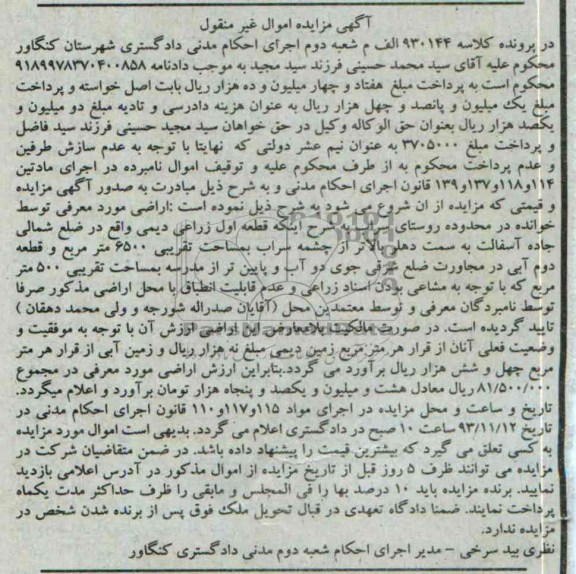 آگهی مزایده اموال غیر منقول
در پرونده کلاسه ۹۳۰۱۴۴ الف م شعبه دوم اجرای احکام مدنی دادگستری شهرستان کنگاور
محکوم علیه آقای سید محمد حسینی فرزند سید مجید به موجب دادنامه ۹۱۸۹۹۷۸۳۷۰۴۰۰۸۵۸
محکوم است به پرداخت مبلغ هفتاد و چهار میلیون و ده هزار ریال بابت اصل خواسته و پرداخت
مبلغ یک میلیون و پانصد و چهل هزار ریال به عنوان هزینه دادرسی و تادیه مبلغ دو میلیون و
یکصد هزار ریال بعنوان حق الوکاله وکیل در حق خواهان سید مجید حسینی فرزند سید فاضل
و پرداخت مبلغ ۳۷۰۵۰۰۰ به عنوان نیم عشر دولتی که نهایتا با توجه به عدم سازش طرفین
و عدم پرداخت محکوم به از طرف محکوم علیه و توقیف اموال نامبرده در اجرای مادتین
۱۱۴و۱۱۸و۱۳۷و۱۳۹ قانون اجرای احکام مدنی و به شرح ذیل مبادرت به صدور آگهی مزایده
و قیمتی که مزایده از ان شروع می شود به شرح ذیل نموده است :اراضی مورد معرفی توسط
خوانده در محدوده روستای شرح اینکه قطعه اول زراعی دیمی واقع در ضلع شمالی
جاده آسفالت به سمت دهلر بالاتر از چشمه سراب بمساحت تقریبی ۶۵۰۰ متر مربع و قطعه
دوم آبی در مجاورت ضلع شرقی جوی دو آب و پایین تر از مدرسه بمساحت تقریبی ۵۰۰ متر
مربع که با توجه به مشاعی بودن اسناد زراعی و عدم قابلیت انطباق با محل اراضی مذکور صرفا
توسط نامبردگان معرفی و توسط معتمدین محل (آقایان صدراله شورجه و ولی محمد دهقان )
تایید گردیده است. در صورت مالکیت بلامعارض این اراضی ارزش آن با توجه به موقعیت و
وضعیت فعلی آنان از قرار هر متر مربع زمین دیمی مبلغ نه هزار ریال و زمین آبی از قرار هر متر
مربع چهل و شش هزار ریال برآورد می گردد.بنابراین ارزش اراضی مورد معرفی در مجموع
۸۱/۵۰۰/۰۰۰ ریال معادل هشت و میلیون و یکصد و پنجاه هزار تومان برآورد و اعلام میگردد.
تاریخ و ساعت و محل مزایده در اجرای مواد ۱۱۵و۱۱۷و۱۱۰ قانون اجرای احکام مدنی در
تاریخ ۹۳/۱۱/۱۲ ساعت ۱۰ صبح در دادگستری اعلام می گردد. بدیهی است اموال مورد مزایده
به کسی تعلق می گیرد که بیشترین قیمت را پیشنهاد داده باشد. در ضمن متقاضیان شرکت در
مزایده می توانند ظرف ۵ روز قبل از تاریخ مزایده از اموال مذکور در آدرس اعلامی بازدید
نمایند. برنده مزایده باید ۱۰ درصد بها را فی المجلس و مابقی را ظرف حداکثر مدت یکماه
پرداخت نمایند. ضمنا دادگاه تعهدی در قبال تحویل ملک فوق پس از برنده شدن شخص در
مزایده ندارد.
نظری بید سرخی - مدیر اجرای احکام شعبه دوم مدنی دادگستری کنگاور